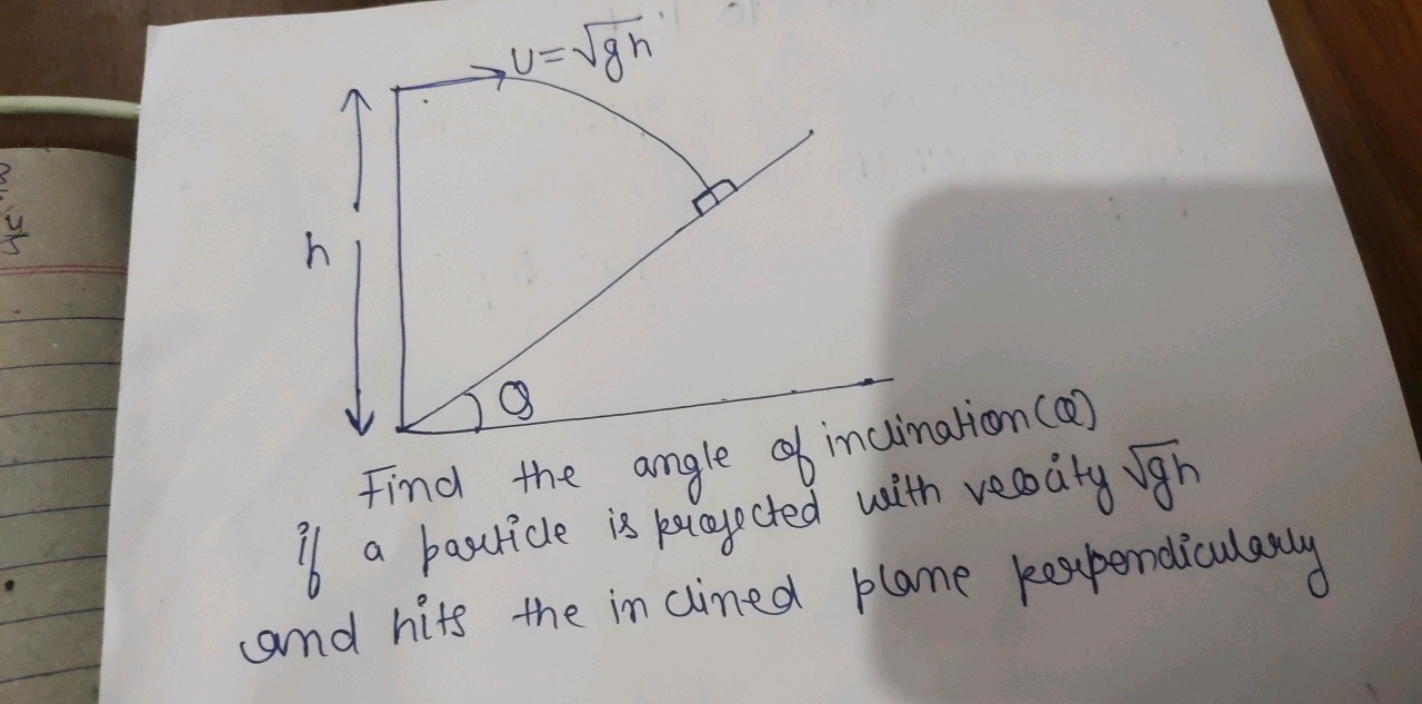 U=√gh
h
θ
Find the angle of inclination (θ)
if a particle is projected with velocity √gh
and hits the inclined plane perpendicularly